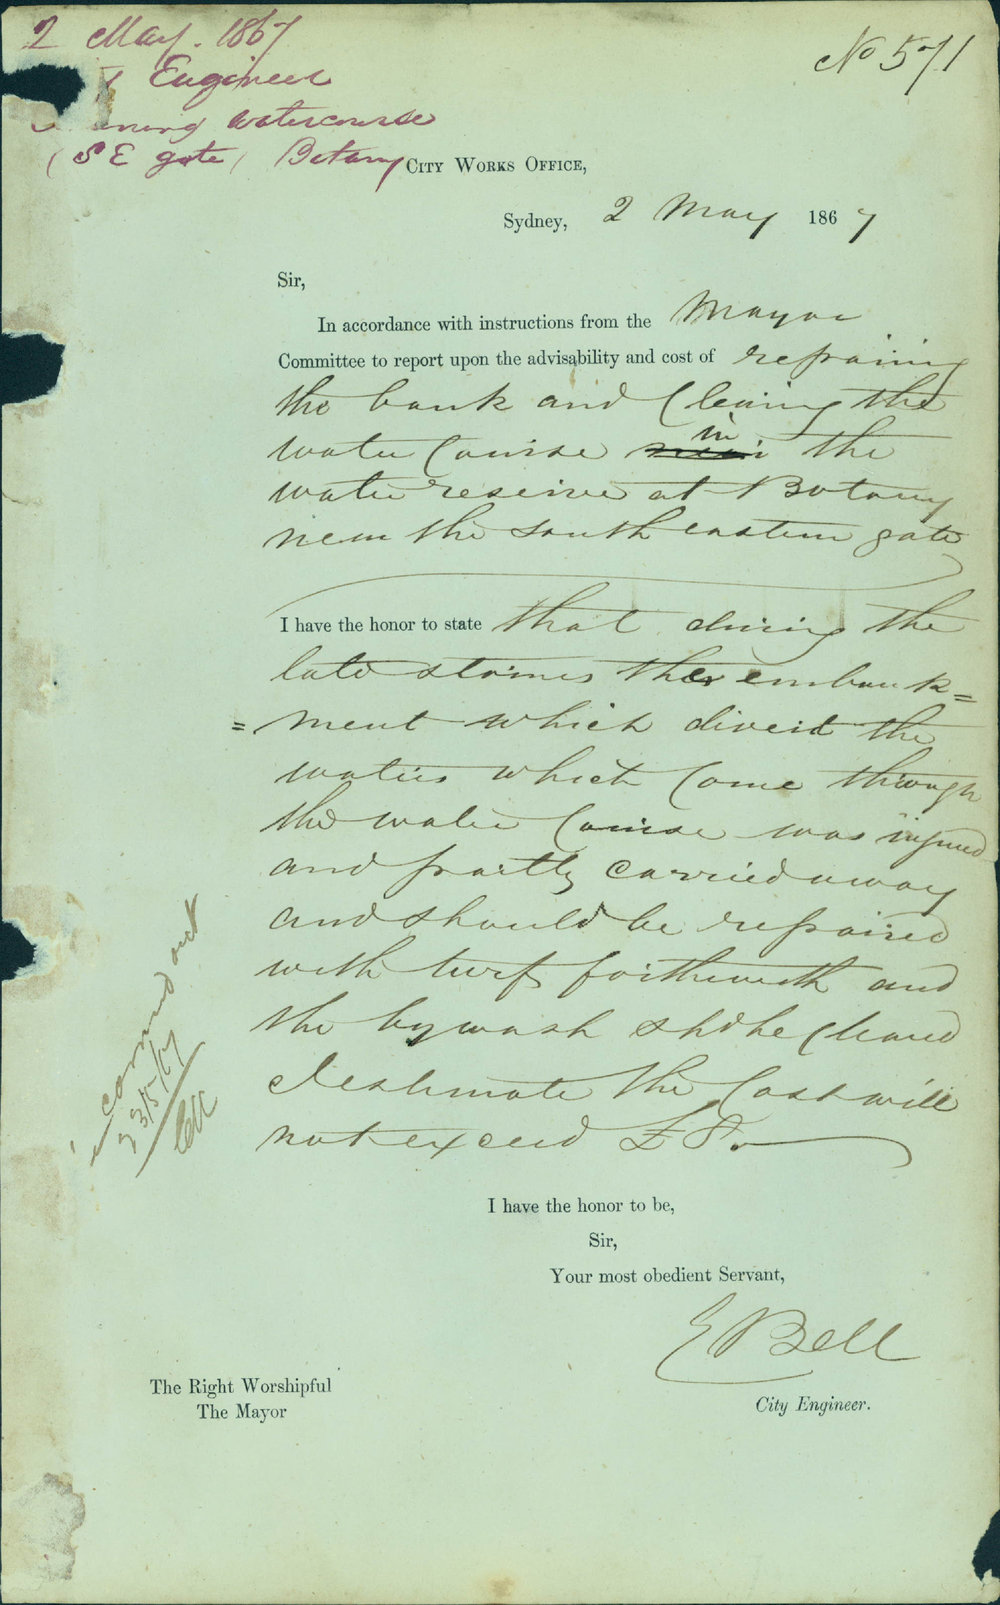 2 May. 1867
Engineer
watercourse
(S E gate) Botany
No 571
CITY WORKS OFFICE,
Sydney, 2 May 1867
Sir,
In accordance with instructions from the Mayor
Committee to report upon the advisability and cost of repairing
the bank and Clearing the
water Course in the
water reserve at Botany
near the south eastern gate
I have the honor to state that during the
late storms the embank=
=ment which divert the
waters which Come through
the water Course was injured
and partly carried away
and should be repaired
with turf forthwith and
the bywash shd be Cleared
I estimate the Cost will
not exceed £8.
carried out
23/5/67
I have the honor to be,
Sir,
Your most obedient Servant,
E Bell
City Engineer.
The Right Worshipful
The Mayor